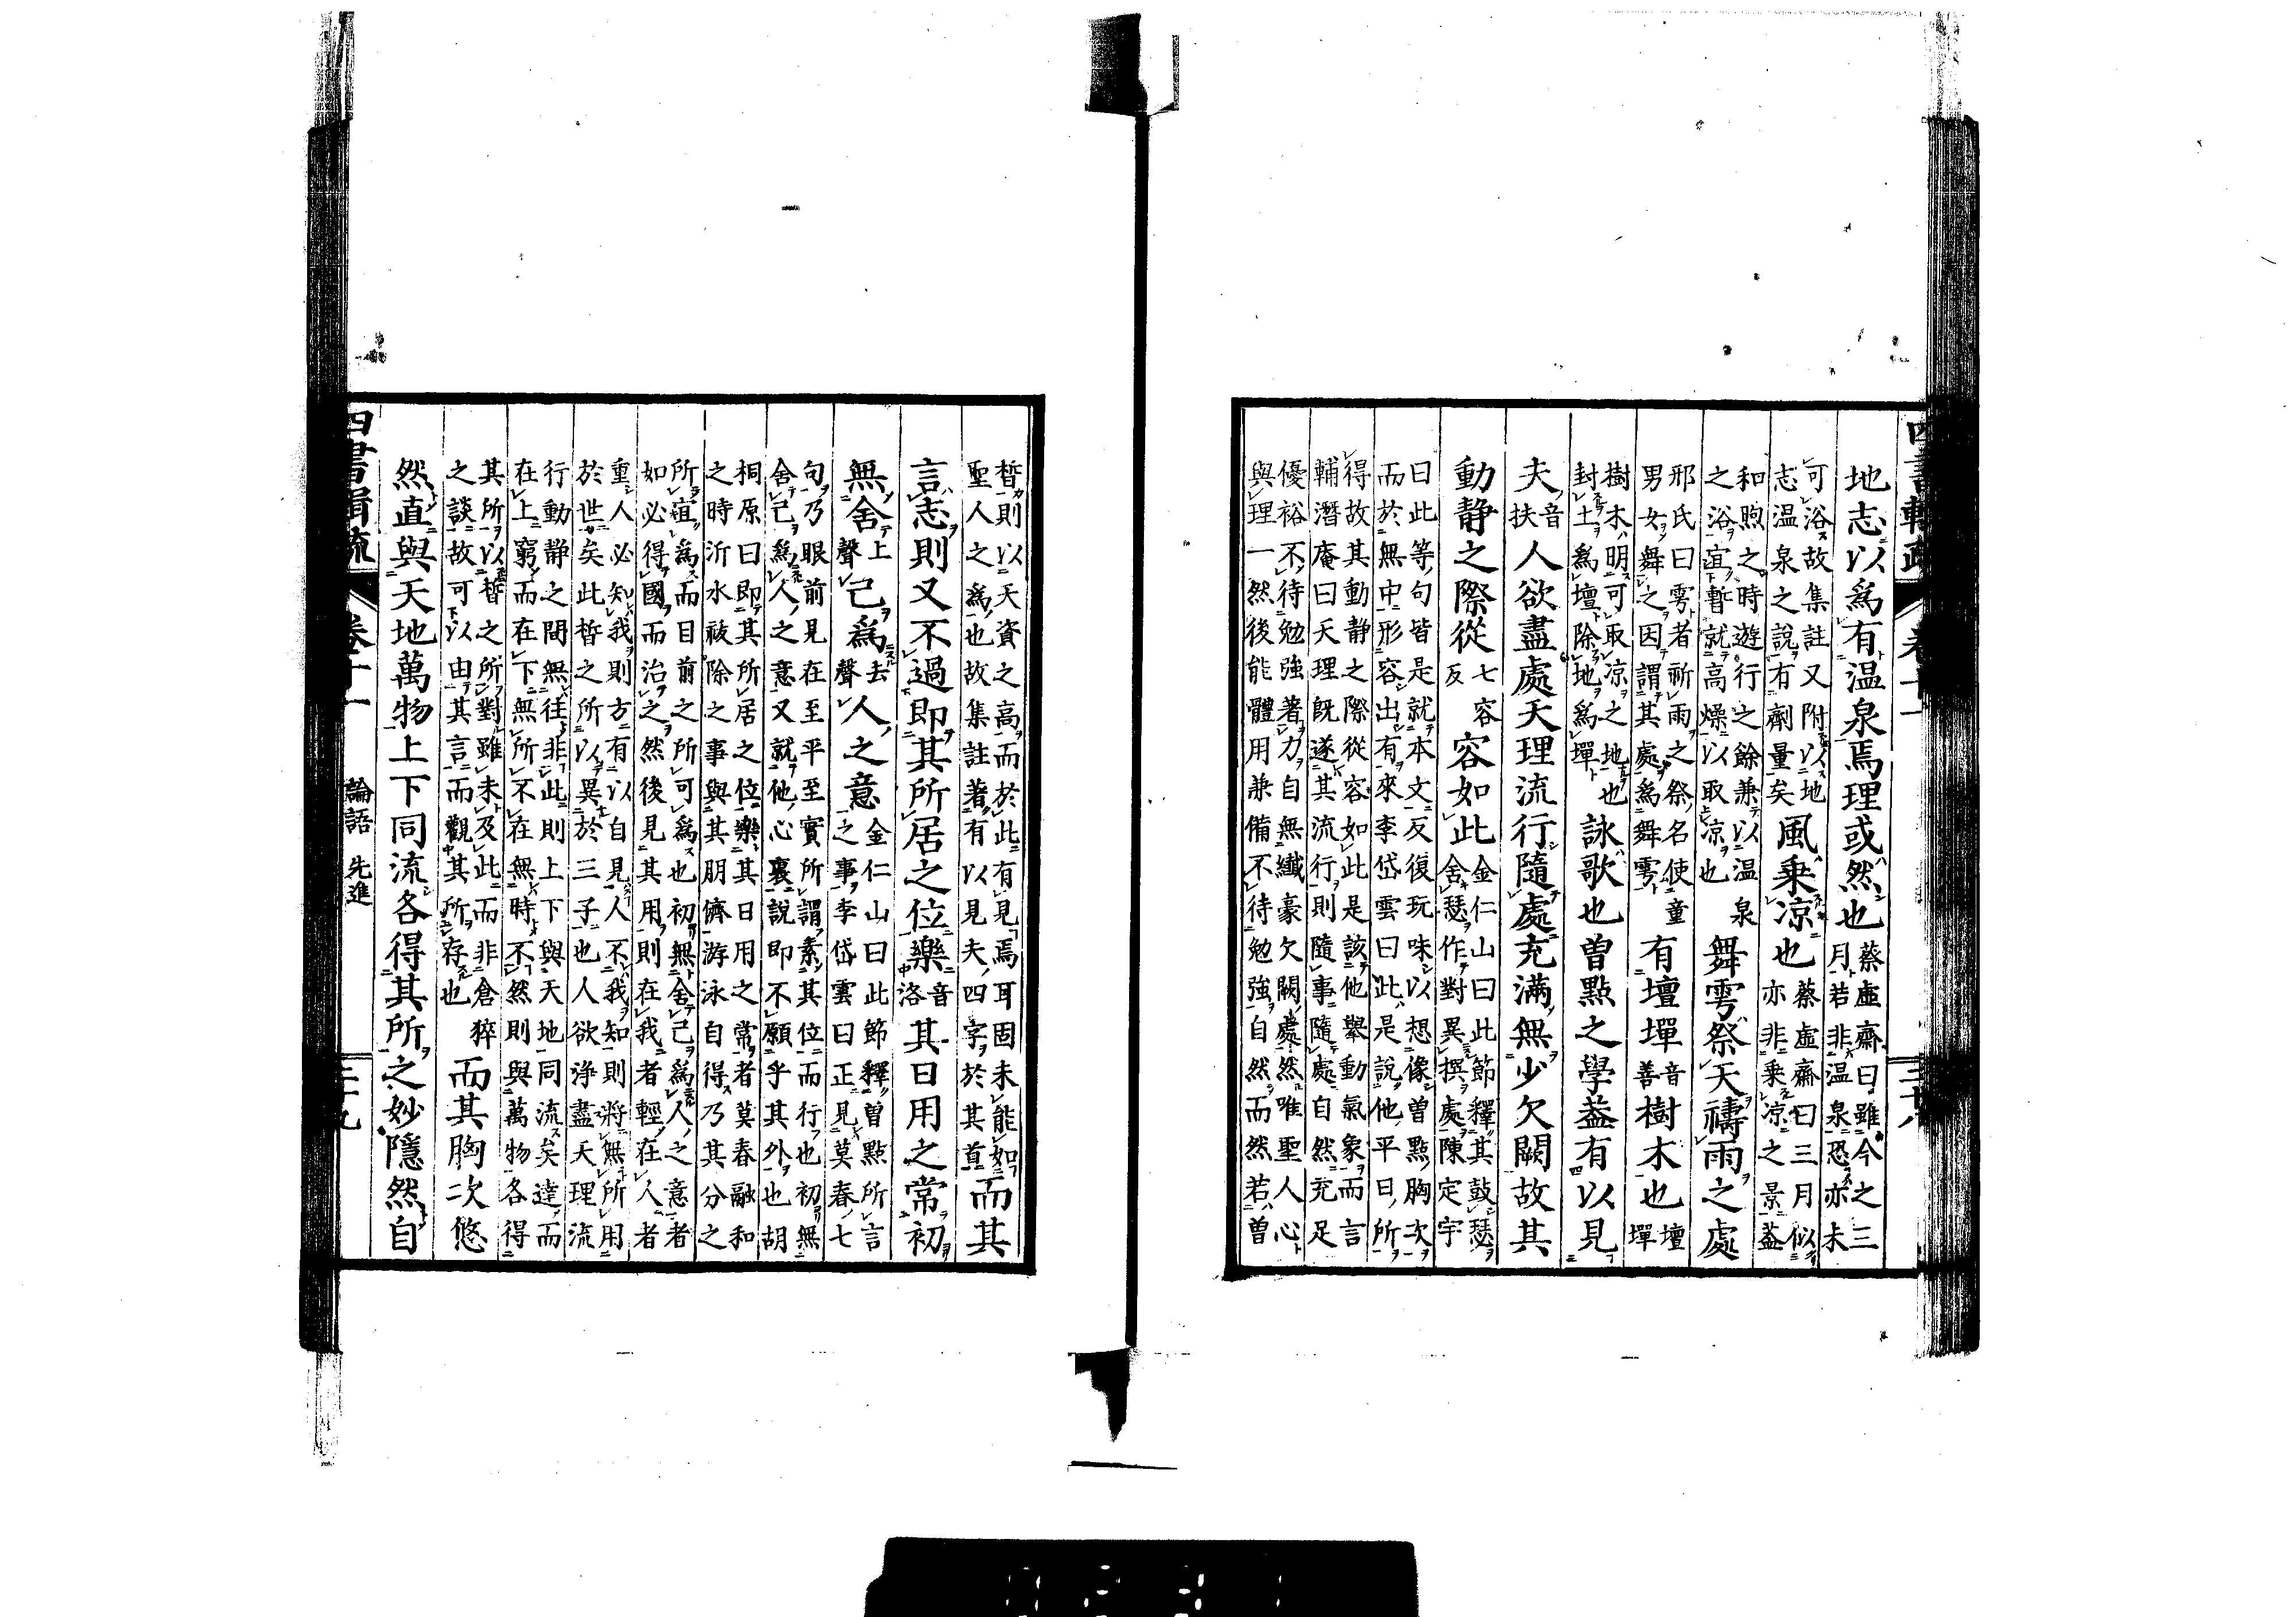 四書輯疏 卷十一 三十八
地志以爲有温泉焉理或然也
蔡虛齋曰雖今之三
月若非温泉恐亦未
可浴故集註又附以地
志温泉之說有劑量矣
風乗凉也
蔡虛齋曰三月似
亦非乗凉之景葢
和煦之時遊行之餘兼以温泉
之浴宜暫就高燥以取凉也
舞雩祭天禱雨之處
邢氏曰雩者祈雨之祭名使童
男女舞之因謂其處爲舞雩
有壇墠
音
善
樹木也
壇
墠
樹木明可取凉之地也
封土爲壇除地爲墠
詠歌也曽點之學葢有以見
夫
音
扶
人欲盡處天理流行隨處充滿無少欠闕故其
動静之際從
七容
反
容如此
金仁山曰此節釋其鼓瑟
舍瑟作對異撰處陳定宇
曰此等句皆是就本文反復玩味以想像曽點胸次
而於無中形容出有來李岱雲曰此是說他平日所
得故其動静之際從容如此是該他舉動氣象而言
輔潛庵曰天理旣遂其流行則隨事隨處自然充足
優裕不待勉強著力自無纖豪欠闕處然唯聖人心
與理一然後能體用兼備不待勉強自然而然若曽
晳則以天資之高而於此有見焉耳固未能如
聖人之爲也故集註著有以見夫四字於其首
而其
言志則又不過即其所居之位樂
音
洛
其日用之常初
無舍
上
聲
己爲
去
聲
人之意
金仁山曰此節釋曽點所言
之事李岱雲曰正見莫春七
句乃眼前見在至平至實所謂素其位而行也初無
舍己爲人之意又就他心裏說即不願乎其外也胡
桐原曰即其所居之位樂其日用之常者莫春融和
之時沂水祓除之事與其朋儕游泳自得乃其分之
所宜爲而目前之所可爲也初無舍己爲人之意者
如必得國而治之然後見其用則在我者輕在人者
重人必知我則方有以自見人不我知則將無所用
於世矣此晳之所以異於三子也人欲浄盡天理流
行動静之間無往非此則上下與天地同流矣達而
在上窮而在下無所不在無時不然則與萬物各得
其所以晳之所對雖未及此而非倉猝
之談故可以由其言而觀其所存也
而其胸次悠
然直與天地萬物上下同流各得其所之妙隱然自
四書輯疏 卷十一 論語 先進 三十九